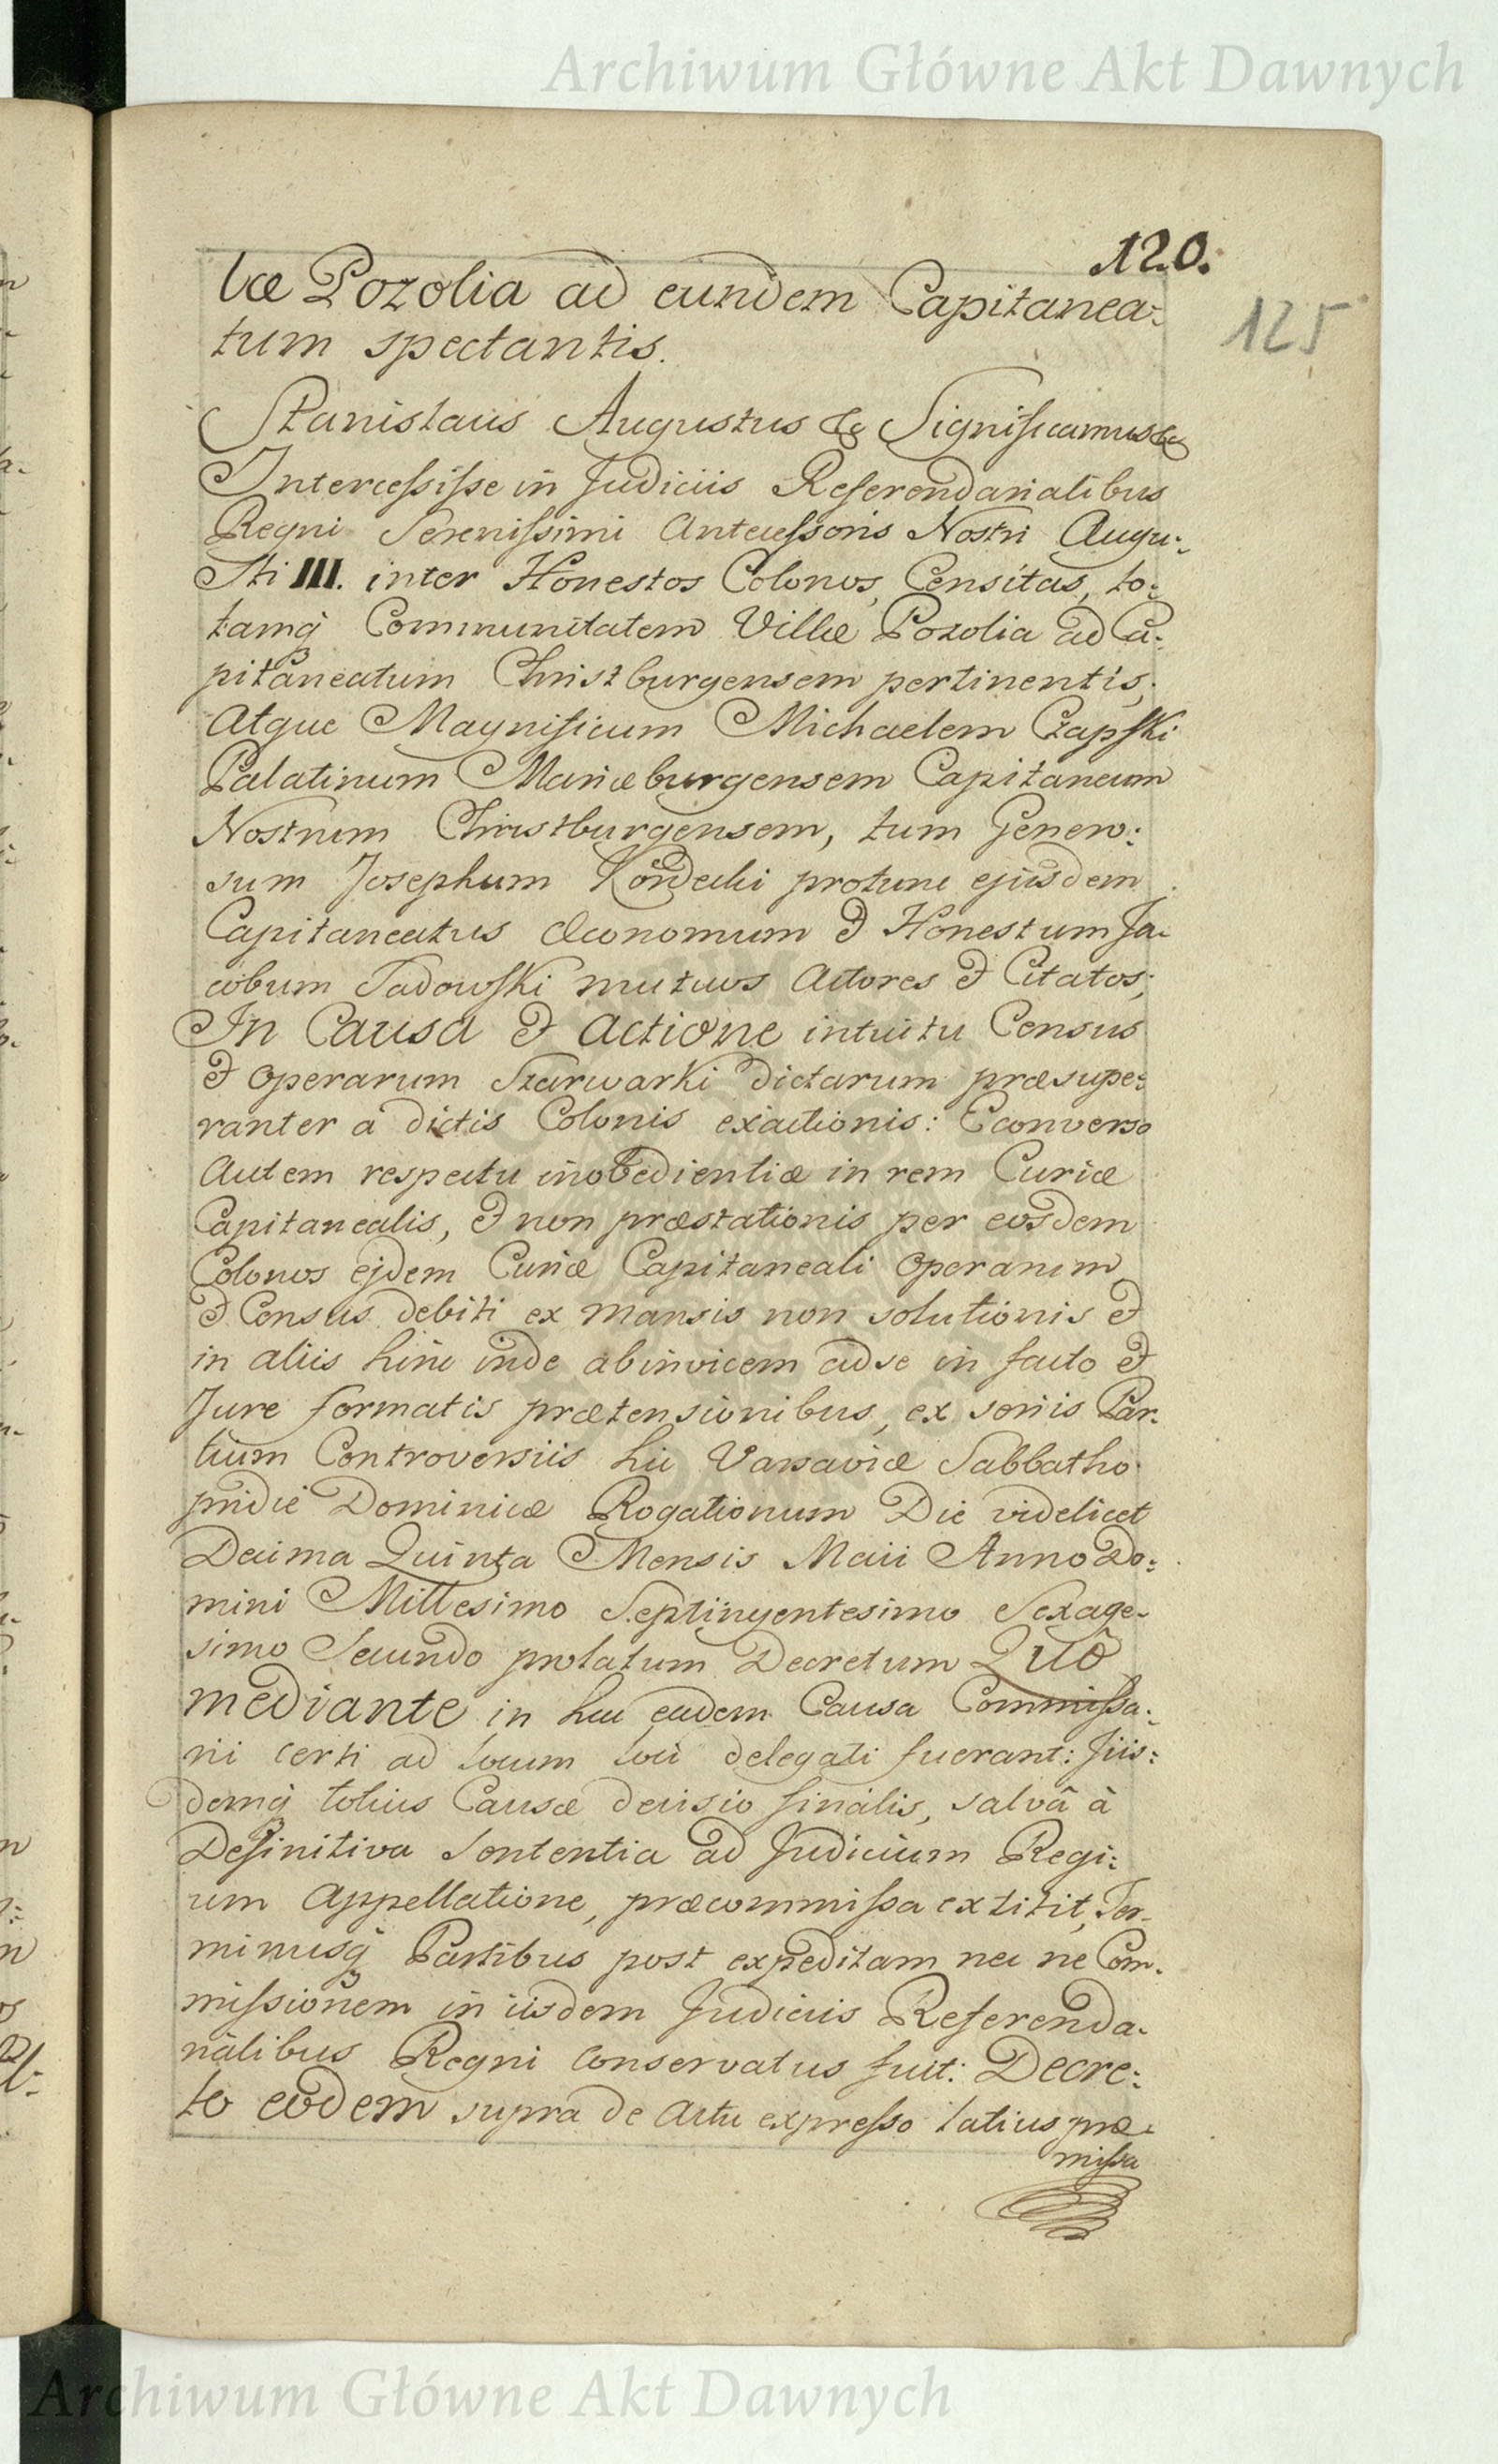 Archiwum Główne Akt Dawnych
120.
125
læ Pozolia ad eundem Capitanea:
tum spectantis.
Stanislaus Augustus &c Significamus &c
Intercessisse in Judiciis Referendarialibus
Regni Serenissimi Antecessoris Nostri Augu:
sti III. inter Honestos Colonos, Censitas, to:
tamq́ Communitatem Villæ Pozolia ad Ca:
pitaneatum Christburgensem pertinentis;
Atque Magnificum Michaelem Czapski
Palatinum Mariæburgensem Capitaneum
Nostrum Christburgensem, tum Genero:
sum Josephum Kondecki protunc ejusdem
Capitaneatus Œconomum & Honestum Ja:
cobum Sadowski mutuos Actores & Citatos;
In Causa & Actione intuitu Census
& Operarum Szarwarki dictarum præsupe:
ranter a dictis Colonis exactionis: Econverso
Autem respectu inobedientiæ in rem Curiæ
Capitanealis, & non præstationis per eosdem
Colonos ejdem Curiæ Capitaneali Operarum
& Census debiti ex Mansis non solutionis &
in aliis hinc inde abinvicem ad se in facto &
Jure formatis prætensionibus, ex soriis Par:
tium Controversiis hic Varsaviæ Sabbatho
pridie Dominicæ Rogationum Die videlicet
Decima Quinta Mensis Maii Anno Do:
mini Millesimo Septingentesimo Sexage:
simo Secundo prolatum Decretum Quô
mediante in hac eadem Causa Commissa:
rii certi ad locum loci delegati fuerant: Jiis:
demq́ totius Causæ decisio finalis, salvâ à
Definitiva Sententia ad Judicium Regi:
um Appellatione, præcommissa extitit, Ter:
minusq́ Partibus post expeditam nec ne Com:
missionem in iisdem Judiciis Referenda:
rialibus Regni conservatus fuit: Decre:
to eodem supra de Actu expresso latius præ:
missa
Archiwum Główne Akt Dawnych